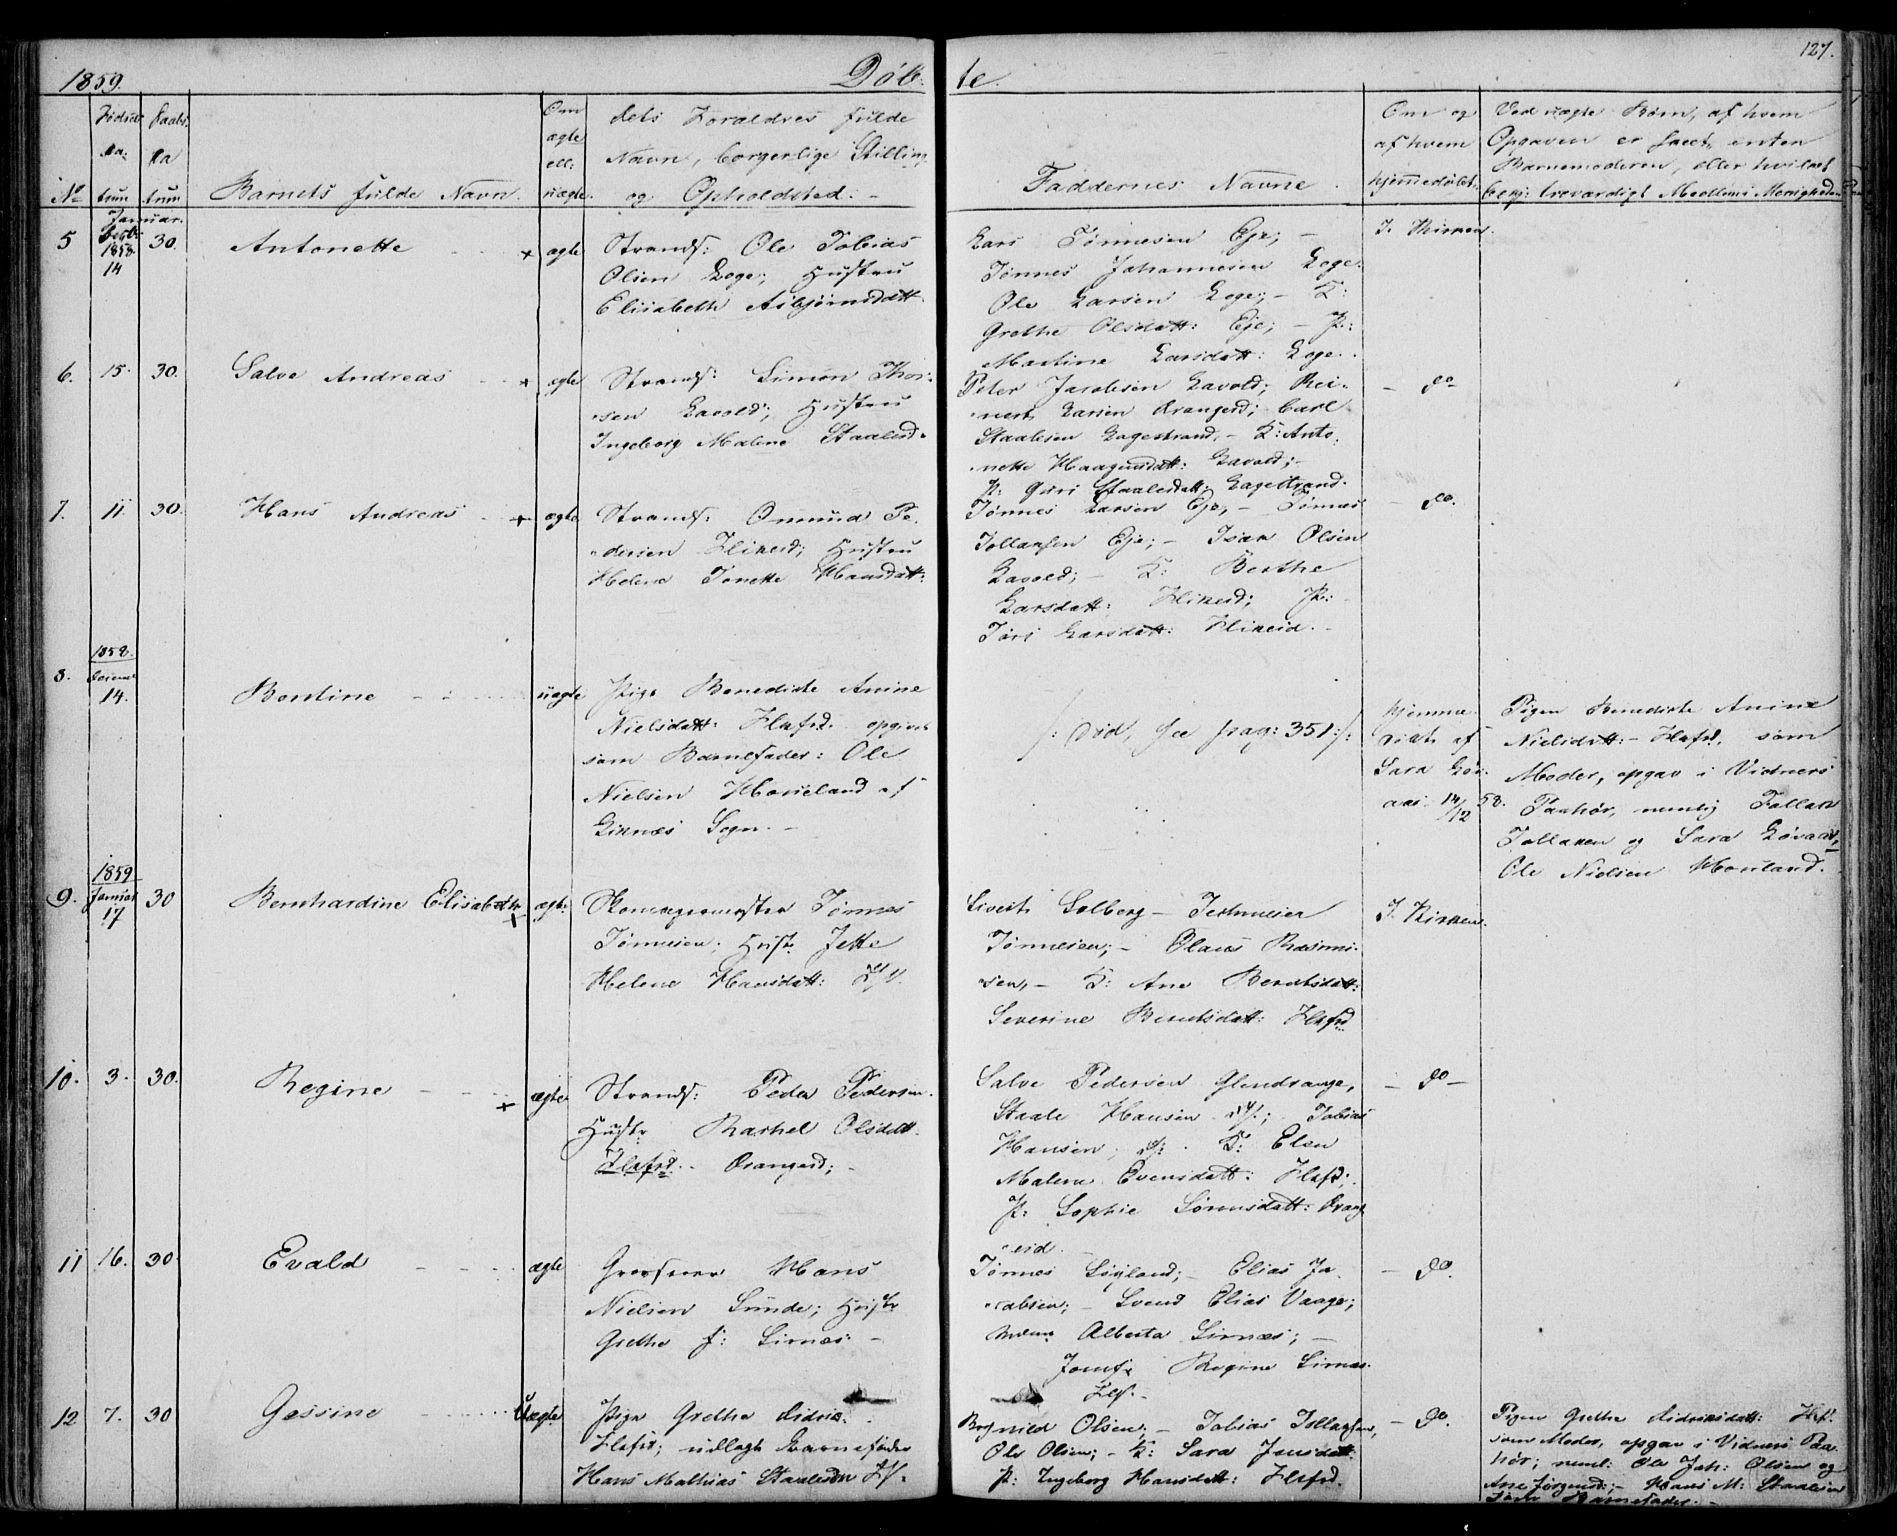 1859. Døb- te. 127.
No
Fødsels
Da-
tum
Daabs
Da
tum
Barnets fulde Navn.
Om
ægte
ell:
uægte.
dets Forældres fulde
Navn, borgerlige Stilling
og Opholdsted. -
Faddernes Navne.
Om og
af hvem
hjemmedøbt.
Ved uægte Børn, af hvem
Opgaven er skeet, enten
Barnemoderen, eller hvilket
troværdigt Medlem i Menigheden
Januar.
5 1858 14 30. Antonette + ægte
Strands: Ole Tobias
Olsen Loge; Hustru
Elisabeth Asbjørnsdatt
Lars Tønnesen Eje; -
Tønnes Johannesen Loge.
Ole Larsen Loge; - K:
Grethe Olsdatt: Eje; - P:
Martine Larsdatt: Loge.
I Kirken.
6. 15. 30. Salve Andreas + ægte
Strands: Simon Thor-
sen Lavold; Hustru
Ingeborg Malene Staalesd.
Peter Jacobsen Lavold; Rei-
nert Larsen Drangeid; Carl
Staalesen Lagestrand, - K: Anto-
nette Haagensdatt: Lavold; -
P: Guri Staalesdatt: Lagestrand.
- do -
7. 11 30. Hans Andreas + ægte
Strands: Omund Pe-
dersen Flikeid; Hustru
Helene Tonette Hansdatt:
Tønnes Larsen Eje, - Tønnes
Tollaksen Eje; - Isak Olsen
Lavold; - K: Berthe
Larsdatt: Flikeid; P:
Tori Larsdatt: Flikeid. -
- do.
1858.
8. 14. Bentine uægte
Pige Benedicte Anine
Nielsdatt: Flekfd. opgivet
som Barnefader: Ole
Nielsen Houeland af
Liknæs Sogn. -
/: død, see pag: 351 :/
hjemme-
døbt af
Sara Løv-
aas 14/12 58.
Pigen Benedicte Anine
Nielsdatt: - Flekfd. som
Moder, opgav i Vidners
Paahør, nemlig Tollak
Tollaksen og Sara Løvaas,
Ole Nielsen Houland.
1859
9. Januar 17 30 Bernhardine Elisabeth + ægte
Skomagermester Tønnes
Tønnesen; Hustr. Jette
Helene Hansdatt: Ff.
Sivert Solberg - Tønnesen
Tønnesen; - Olaus Rasmus-
sen, - K: Ane Berntsdatt:
Severine Berntsdatt: Flekfd
I Kirken.
10. 3. 30. Regine + ægte
Strands: Peder Pedersen.
Hustr Rachel Olsdatt.
Flekfd. Drangeid; -
Salve Pedersen Glendrange,
Staale Hansen Ff.; Tobias
Hansen; Ff: K: Elen
Malene Evensdatt: Flekfd;
P: Sophie Sørensdatt: Drang
eid.
- do -
11 16. 30. Evald ægte
Grosserer Hans
Nielsen Sunde; Hustr
Grethe f: Sirnæs. -
Tønnes Søyland; - Elias Ja-
cobsen; - Svend Elias Vaage;
Mdme Alberta Sirnæs; -
Jomfr Regine Sirnæs.
Flf. -
- do.
12 7. 30 Gessine Uægte
Pige Grethe Didrik-
Flekfd; udlagte Barnefader
Hans Mathias Staalesen Ff.
Bognild Olsen; - Tobias Tollaksen,
Ole Olsen; - K: Sara Jansdatt:
P: Ingeborg Hansdatt: Flekfd.
- do.
Pigen Grethe Didriksdatt: Flf.
som Moder, opgav i Vidners Paa-
hør; neml: Ole Joh: Olsen og
Ane Jørgensd; - Hans M: Staalesen
som Barnefader. -